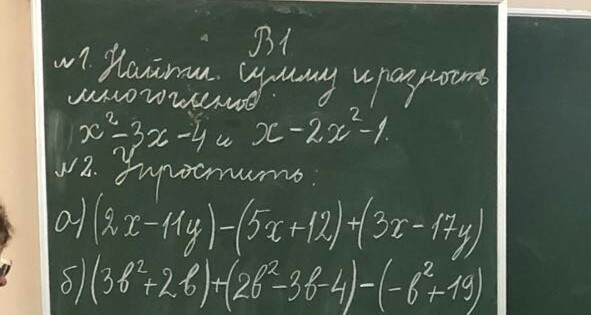 В1
№1. Найти сумму и разность
многочленов
x²-3x-4 и x-2x²-1.
№2. Упростить:
а) (2x-11y)-(5x+12)+(3x-17y)
б) (3b²+2b)+(2b²-3b-4)-(-b²+19)